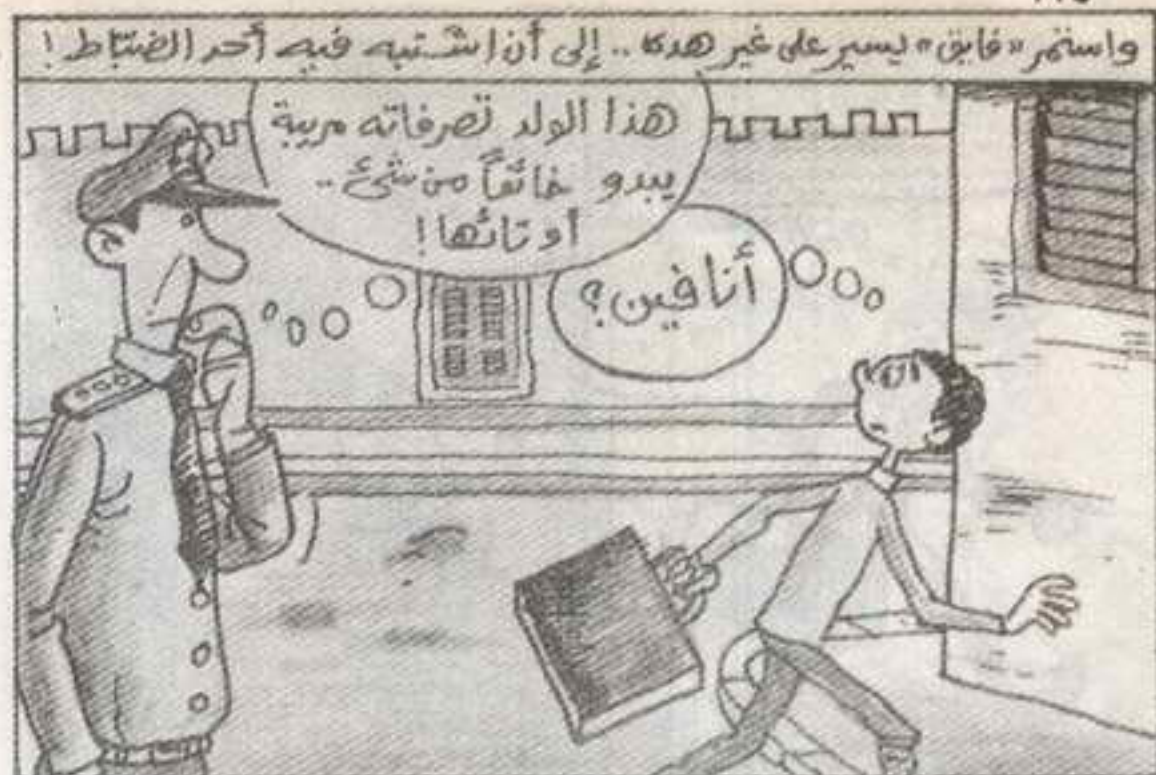 واستمر «فايق» يسير على غير هدى.. إلى أن اشتبه فيه أحد الضباط!
هذا الولد تصرفاته مريبة
يبدو خائفاً من شئ..
أو تائها!
أنا فين؟